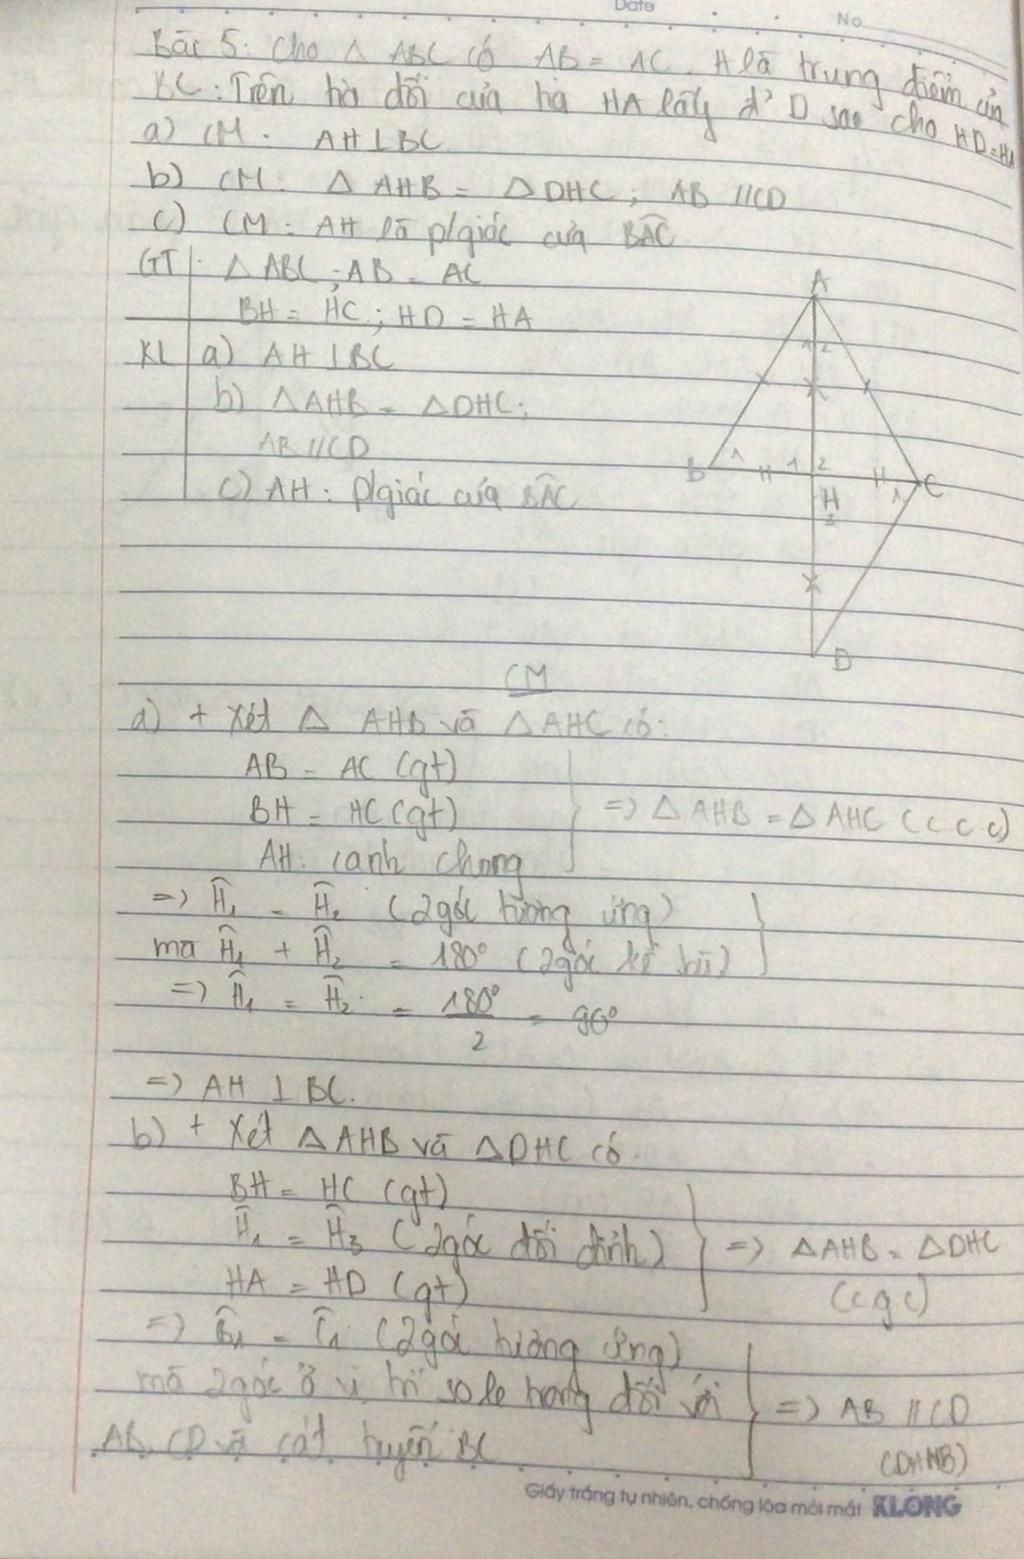 Date
No
Bài 5: Cho △ ABC có AB = AC. H là trung điểm của
BC. Trên tia đối của tia HA lấy đ' D sao cho HD=HA
a) CM: AH⊥BC
b) CM: △ AHB = △DHC; AB //CD
c) CM: AH là p/giác của BÂC
GT : △ ABC; AB = AC
BH = HC; HD = HA
KL a) AH⊥BC
b) △AHB = △DHC;
AB//CD
c) AH: p/giác của BÂC
A
1 2
B 1 1 2 C
H 1
3
D
CM
a) + Xét △ AHB và △AHC có:
AB = AC (gt)
BH = HC (gt) => △ AHB = △ AHC (c.c.c)
AH: cạnh chung
=> Ĥ₁ = Ĥ₂ (2góc tương ứng)
mà Ĥ₁ + Ĥ₂ = 180° (2góc kề bù)
=> Ĥ₁ = Ĥ₂ = 180°/2 = 90°
=> AH ⊥ BC.
b) + Xét △AHB và △DHC có
BH = HC (gt)
Ĥ₁ = Ĥ₃ (2góc đối đỉnh) => △AHB = △DHC
HA = HD (gt) (cgc)
=> B̂₁ = Ĉ₁ (2góc tương ứng)
mà 2góc ở vị trí so le trong đối với => AB //CD
AB, CD và cát tuyến BC (DHNB)
Giấy trắng tự nhiên, chống lóa mỏi mắt KLONG